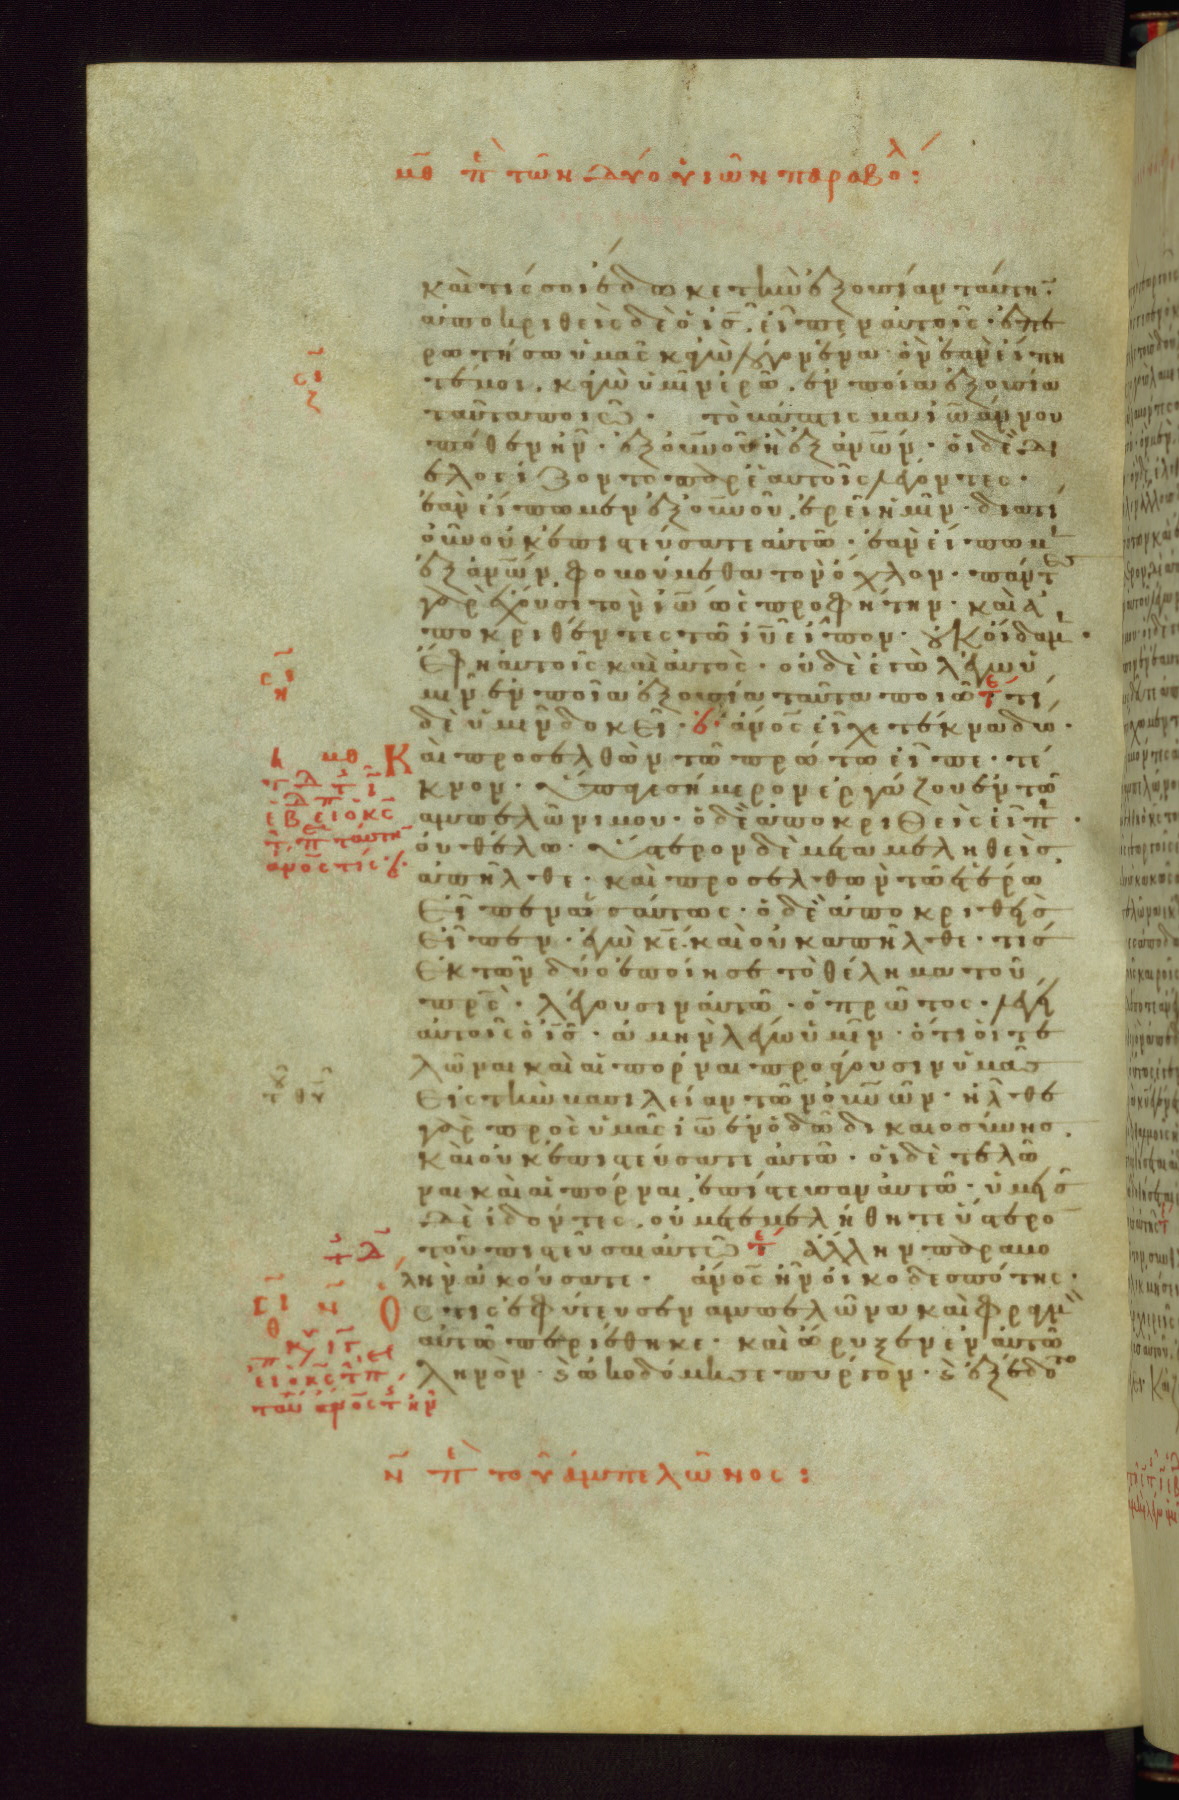 μθ πε τῶν δύο ὑιῶν παραβολ:
καὶ τίς σοι ἔδωκε τὴν ἐξουσίαν ταύτην·
ἀποκριθεὶς δὲ ὁ ις, εἶπεν αὐτοῖς· ἐπε
ρωτήσω ὑμᾶς κἀγὼ λόγον ἕνα· ὃν ἐὰν εἴπη
τέ μοι, κἀγὼ ὑμῖν ἐρῶ, ἐν ποία ἐξουσία
σι
ζ
ταῦτα ποιῶ· τὸ βάπτισμα ιω ἄν που
πόθεν ἦν· ἐξ ουνου ἢ ἐξ ανων· οἱ δὲ δι
ελογίζοντο παρ' ἑαυτοῖς λέγοντες·
ἐὰν εἴπωμεν ἐξ ουνου, ἐρεῖ ἡμῖν· διατί
οὖν οὐκ ἐπιστεύσατε αὐτῶ· ἐὰν εἴπωμ
ἐξ ανων, φοβούμεθα τὸν ὄχλον· πάντες
γὰρ ἔχουσι τὸν ιω ὡς προφήτην· καὶ ἀ
ποκριθέντες τῶ ιυ εἶπον· οὐκ οἴδαμ·
ἔφη αὐτοῖς καὶ αὐτὸς· οὐδὲ ἐγὼ λέγω ὑ
σι
η
μῖν ἐν ποία ἐξουσία ταῦτα ποιῶ τε τί
δὲ ὑμῖν δοκεῖ· ανος εἶχε τέκνα δύο·
μθ
Καὶ προσελθὼν τῶ πρώτω εἶπε· τέ
κνον· ὕπαγε σήμερον ἐργάζου ἐν τῶ
ἀμπελῶνι μου· ὁ δὲ ἀποκριθεὶς εἶπ
οὐ θέλω· ὕστερον δὲ μεταμεληθεὶς
ανος τίς
ἀπῆλθε· καὶ προσελθὼν τῶ ἑτέρω
εἶπεν ὡσαύτως· ὁ δὲ ἀποκριθεὶς
εἶπεν· ἐγὼ κε· καὶ οὐκ ἀπῆλθε· τίς
ἐκ τῶν δύο ἐποίησε τὸ θέλημα τοῦ
πρς· λέγουσιν αὐτῶ· ὁ πρῶτος· λέγει
αὐτοῖς ὁ ις· ἀμὴν λέγω ὑμῖν· ὅτι οἱ τε
λῶναι καὶ αἱ πόρναι προάγουσιν ὑμᾶς
εἰς τὴν βασιλείαν τῶν ουνων· ἦλθε
γὰρ πρὸς ὑμᾶς ιω ἐν ὁδῶ δικαιοσύνης,
καὶ οὐκ ἐπιστεύσατε αὐτῶ· οἱ δὲ τελῶ
ναι καὶ αἱ πόρναι, ἐπίστευσαν αὐτῶ· ὑμεῖς
δὲ ἰδόντες, οὐ μετεμελήθητε ὕστερον
τοῦ πιστεῦσαι αὐτῶ τε ἄλλην παραβο
λὴν ἀκούσατε· ανος ἦν οἰκοδεσπότης·
σι ν
θ
Ὅστις ἐφύτευσεν ἀμπελῶνα καὶ φραγμ
αὐτῶ περιέθηκε· καὶ ὤρυξεν ἐν αὐτῶ
ληνὸν· ϗ ὠκοδόμησε πύργον· ϗ ἐξέδοτο
ν πε τοῦ ἀμπελῶνος: